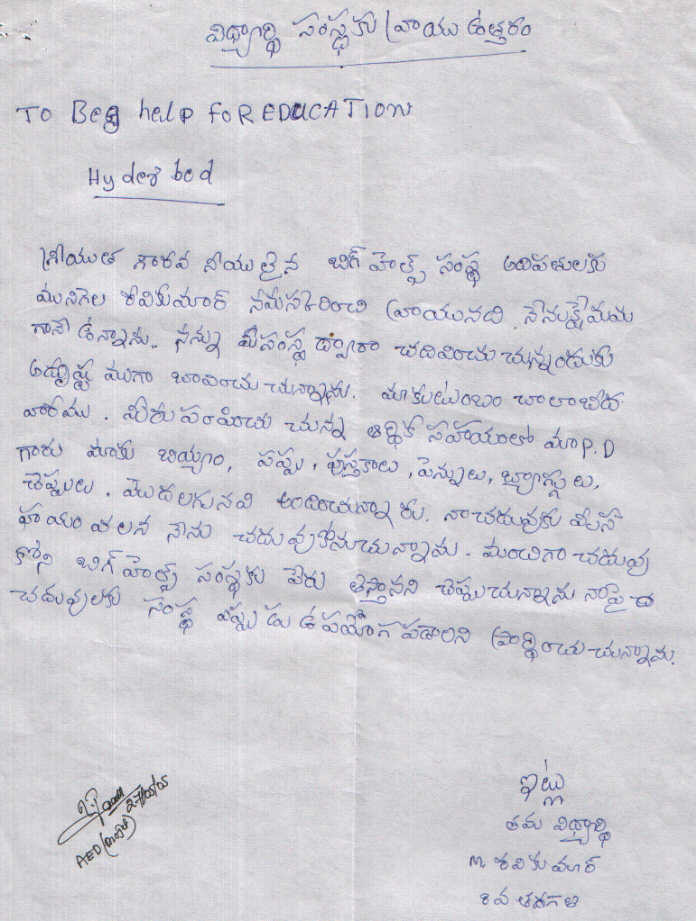 విద్యార్థి సంస్థకు వ్రాయు ఉత్తరం
TO Beg help FOR EDUCATION
Hyderabod
శ్రీయుత గౌరవ నీయులైన బిగ్ హెల్ప్ సంస్థ అదిపతులకు
మునిగెల రవికుమార్ నమస్కరించి వ్రాయునది. నేను క్షేమము
గానే ఉన్నాను. నన్ను మీసంస్థ ద్వారా చదివించు చున్నందుకు
అదృష్ట ముగా బావించు చున్నాను. మాకుటుంబం చాలాబీద
వారము. మీరు పంపించు చున్న ఆర్థిక సహాయంలో మా P.D
గారు మాకు బియ్యం, పప్పు, పుస్తకాలు, పెన్నులు, బ్యాగ్గులు,
చెప్పులు. మొదలగునవి అందించుచున్నారు. నాచదువుకు మీస
హాయం వలన నేను చదువుకొనుచున్నాను. మంచిగా చదువు
కోని బిగ్ హెల్ప్ సంస్థకు పేరు తెస్తానని చెప్పుచున్నాను నాపై చ
చదువులకు సంస్థ ఎప్పుడు ఉపయోగపడాలని ప్రార్థించుచున్నాను.
ఇట్లు
తమ విద్యార్థి
M. రవికుమార్
8వ తరగతి
AED